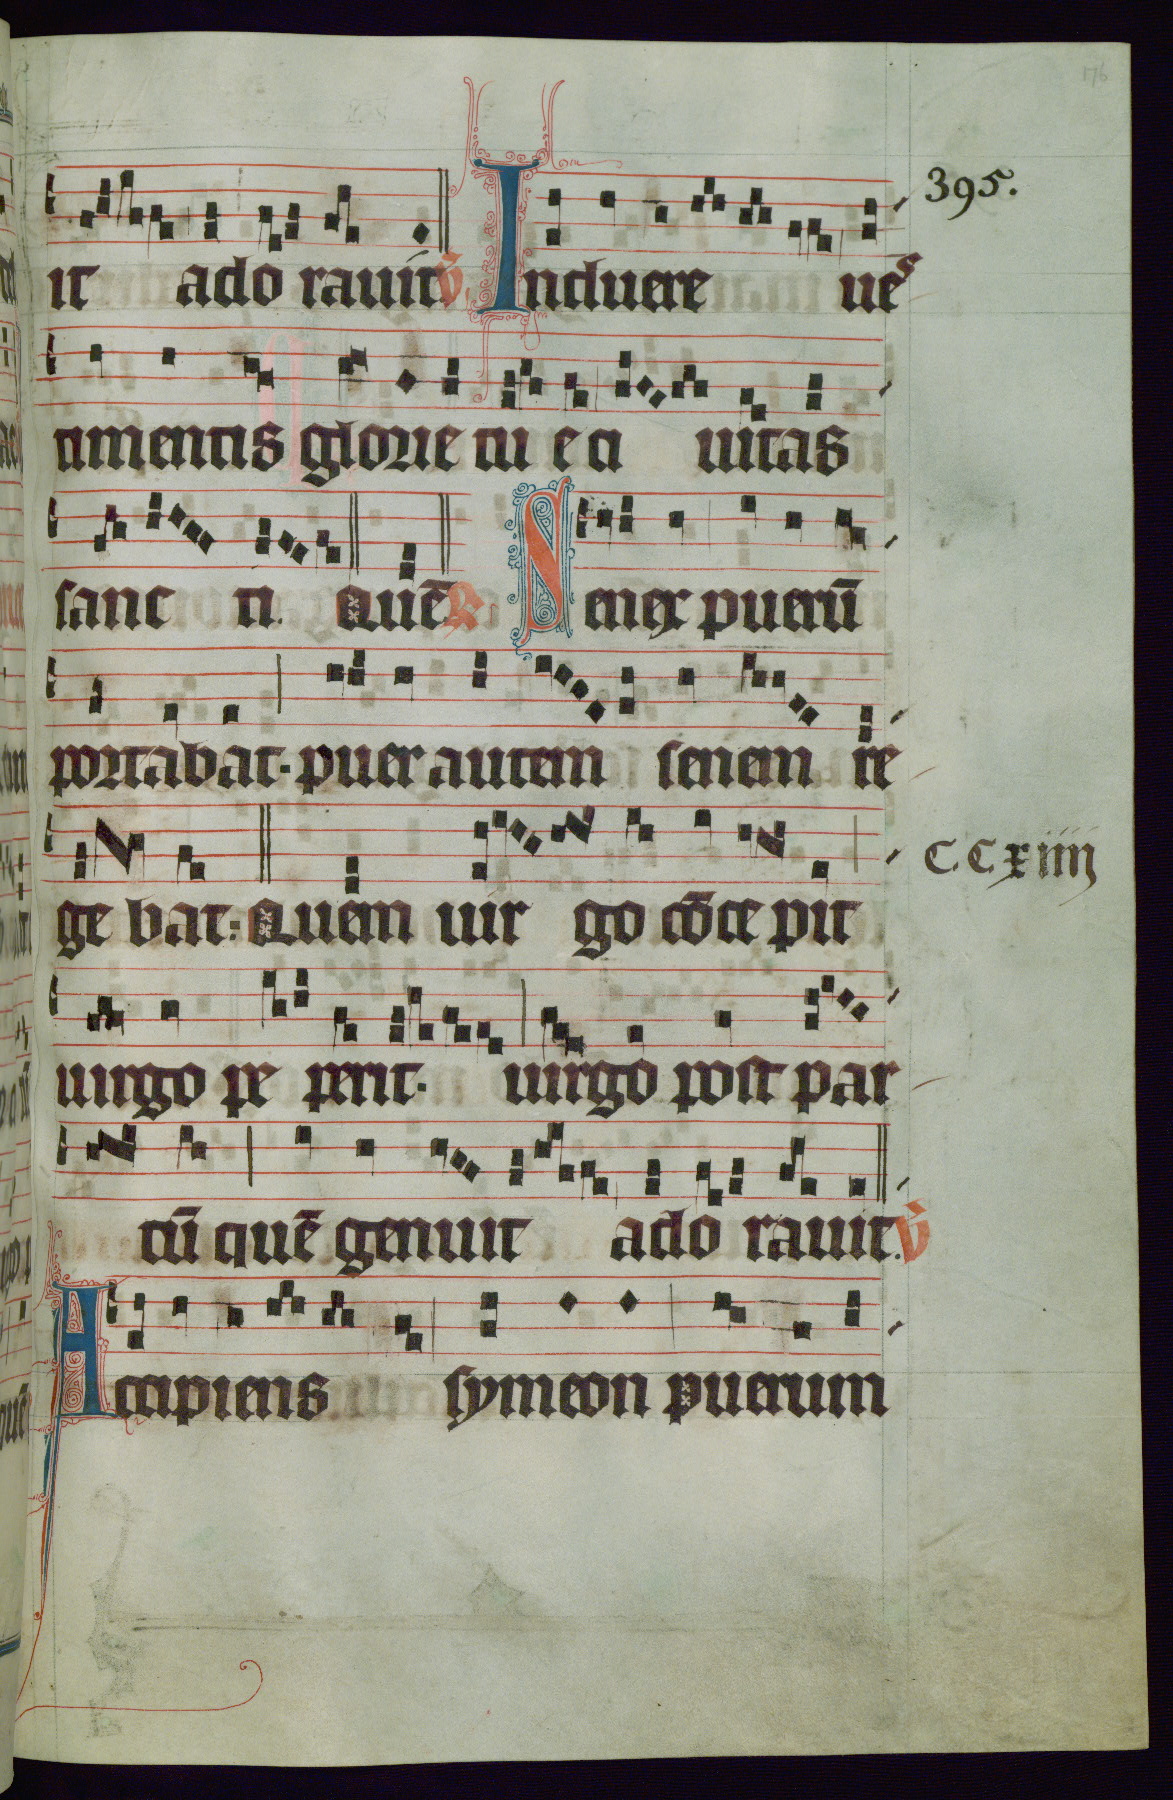 176
395.
it ado rauit ℣. Induere ues
timentis glorie tu e ci uitas
sanc ti. Quē ℟. Senex puerū
portabat. puer autem senem re
ge bat: Quem uir go cōce pit
CCxiiii
uirgo pe perit. uirgo post par
tū quē genuit ado rauit. ℣
Accipiens symeon puerum